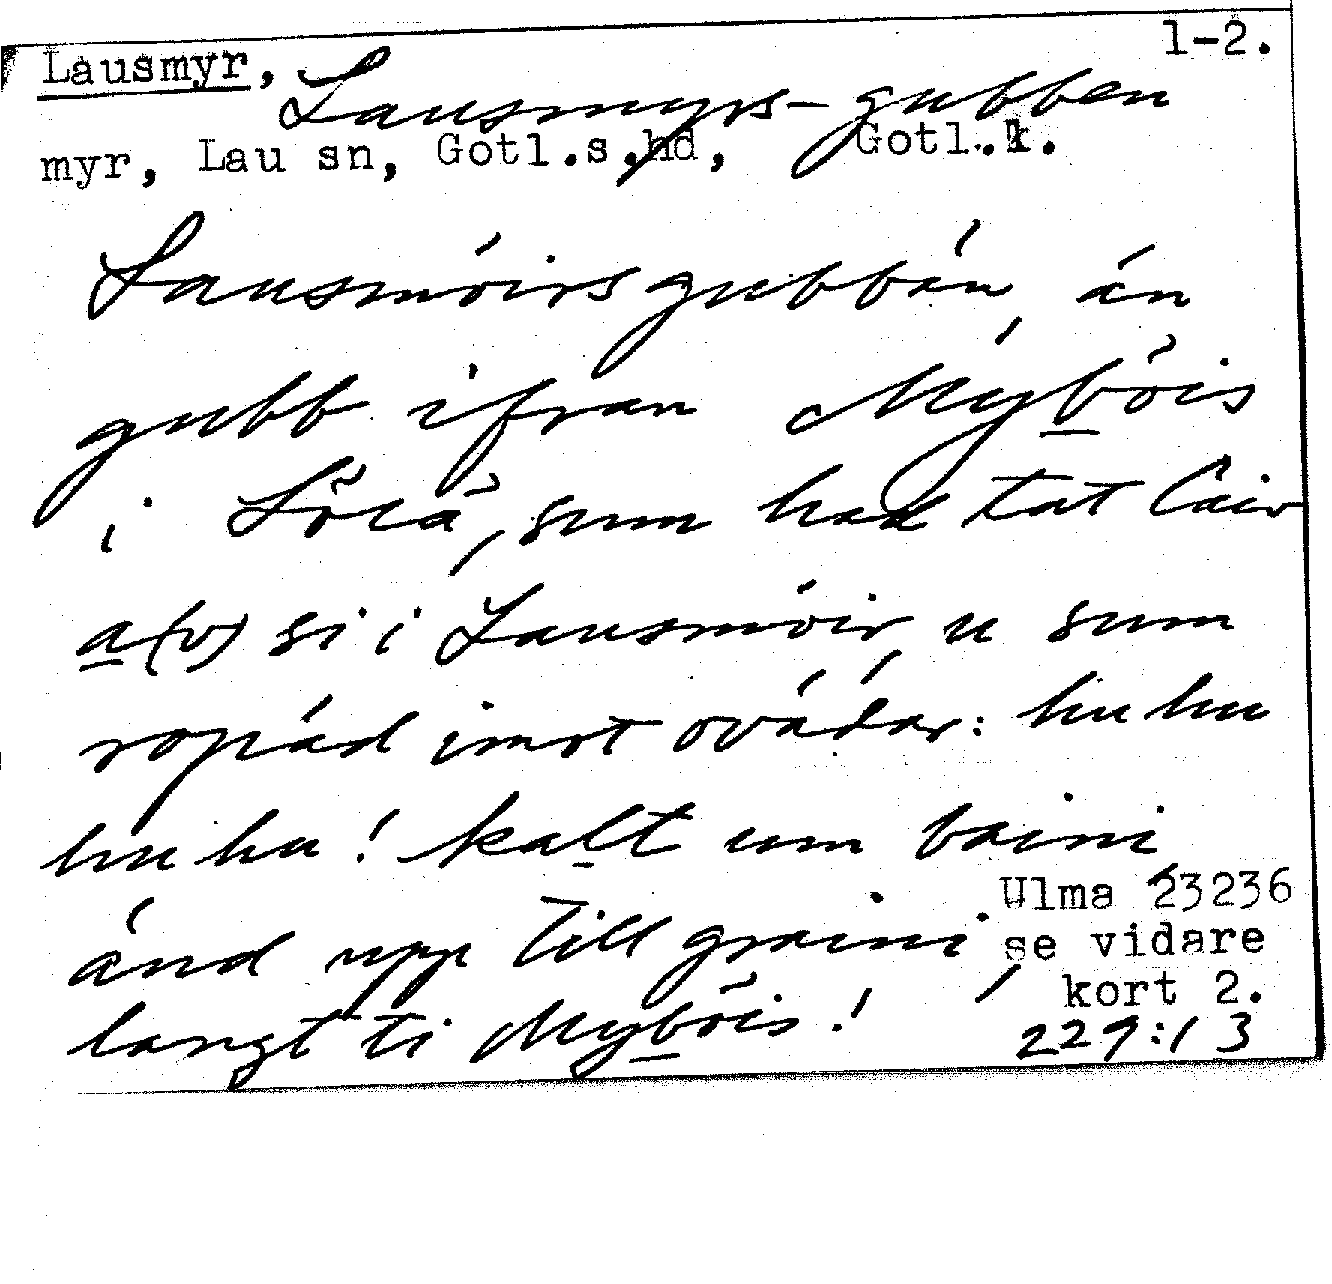 Lausmyr, 1-2.
Lausmyrs-gubben
myr, Lau sn, Gotl.s.hd, Gotl.k.
Lausmóirsgubbán, án
gubb ifran Mybȭis
i Lõiå, sum had tat
a(v) si i Lausmóir, u sum
ropád imot ovádar: hu hu
hu hu! kalt um baini,
ánd upp till graini,
langt ti Mybȭis!
Ulma 23236
se vidare
kort 2.
229:13